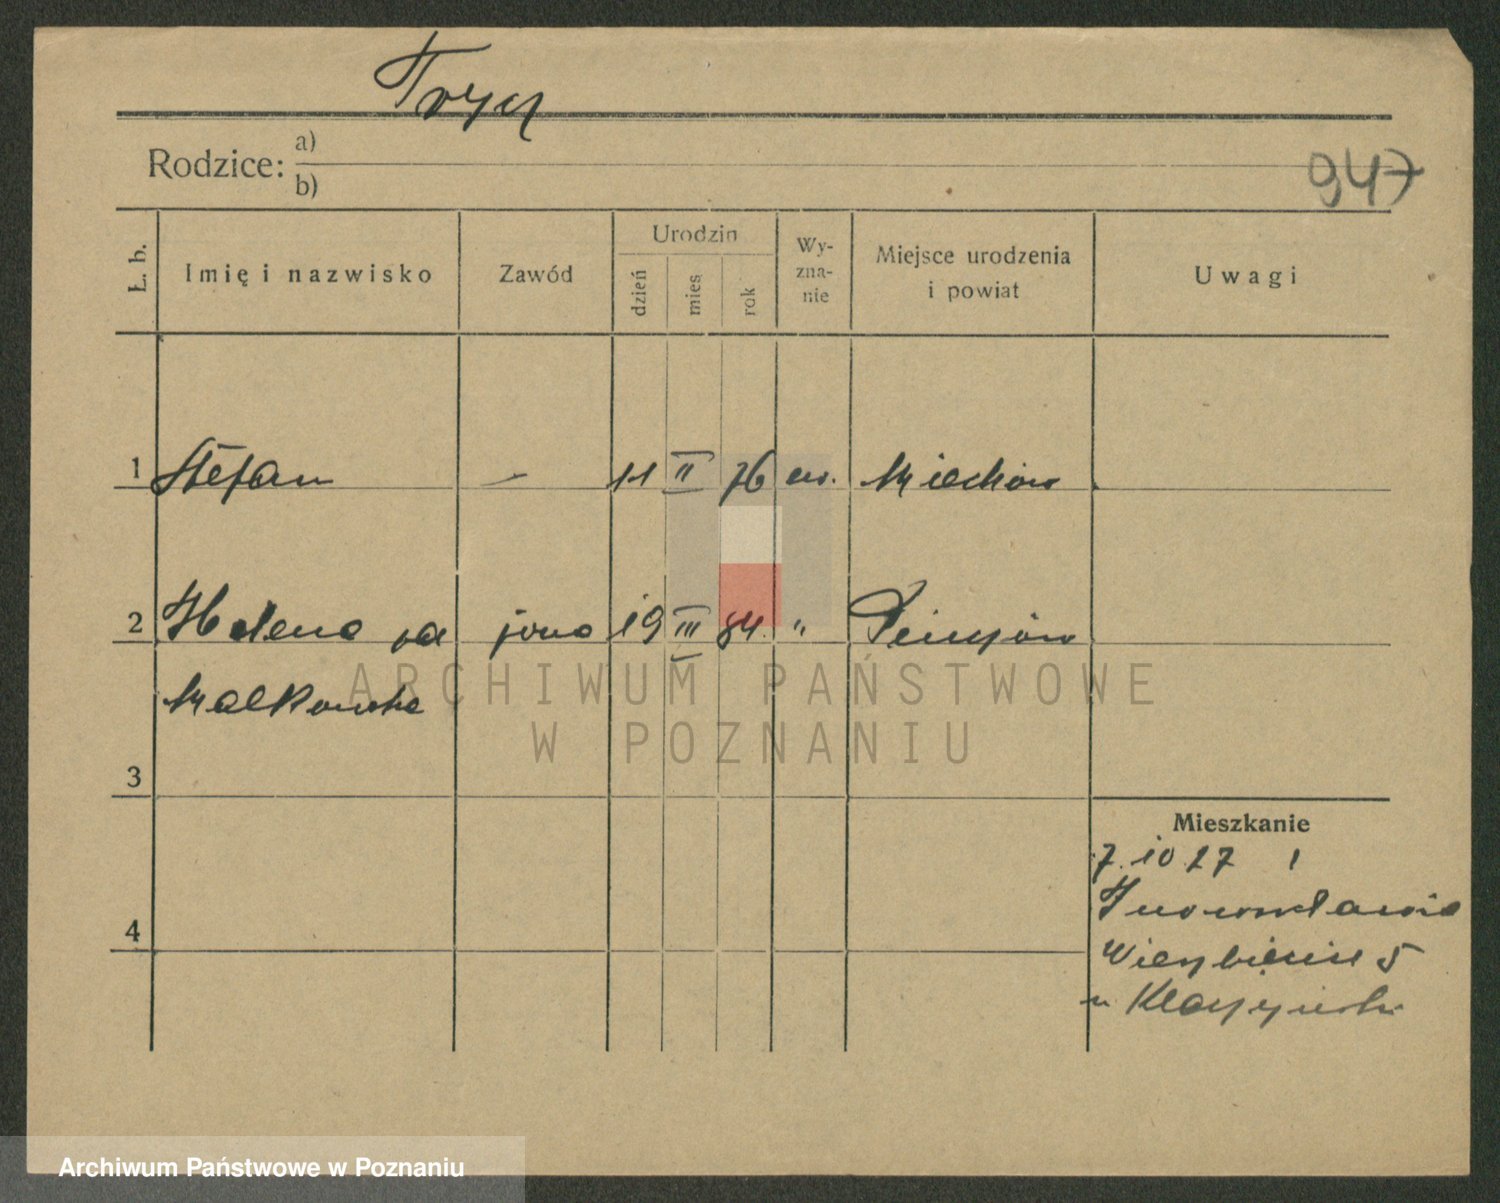 Tryc
Rodzice: a)
b)
947
L. b. Imię i nazwisko Zawód Urodzin dzień mies rok Wy-zna-nie Miejsce urodzenia i powiat Uwagi
1 Stefan — 11 II 76 ew. Miechów
2 Helena od żona 19 III 84. "
Malkowska
3
Mieszkanie
7. 10 27 1
4
5
ARCHIWUM PAŃSTWOWE
W POZNANIU
Archiwum Państwowe w Poznaniu